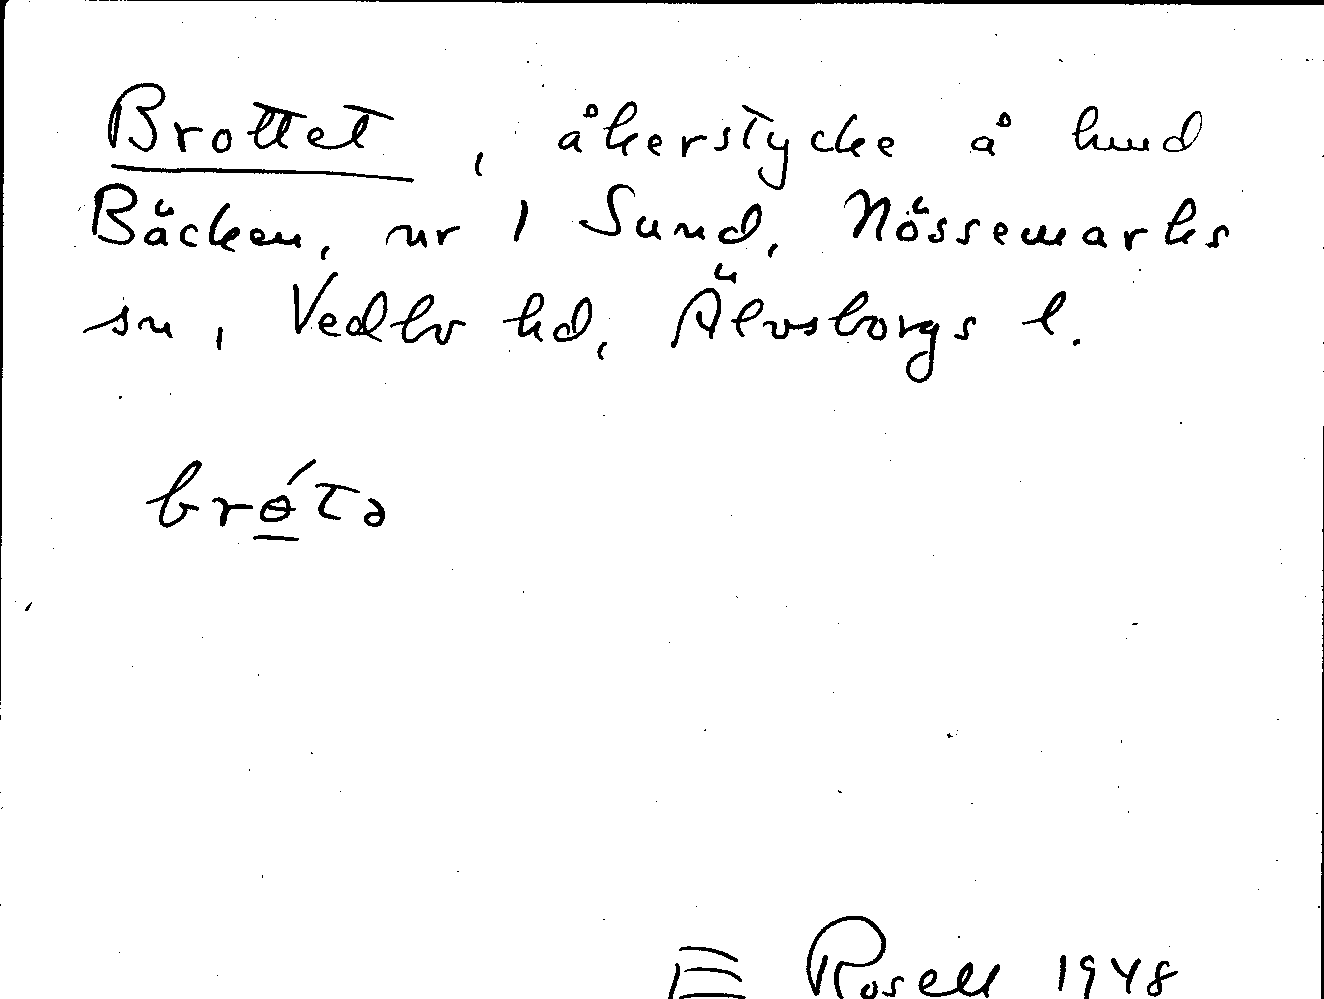 Brottet, åkerstycke å hmd
Bäcken, nr 1 Sund, Nössemarks
sn, Vedbo hd, Älvsborgs l.
brɵ́tə
E Rosell 1948